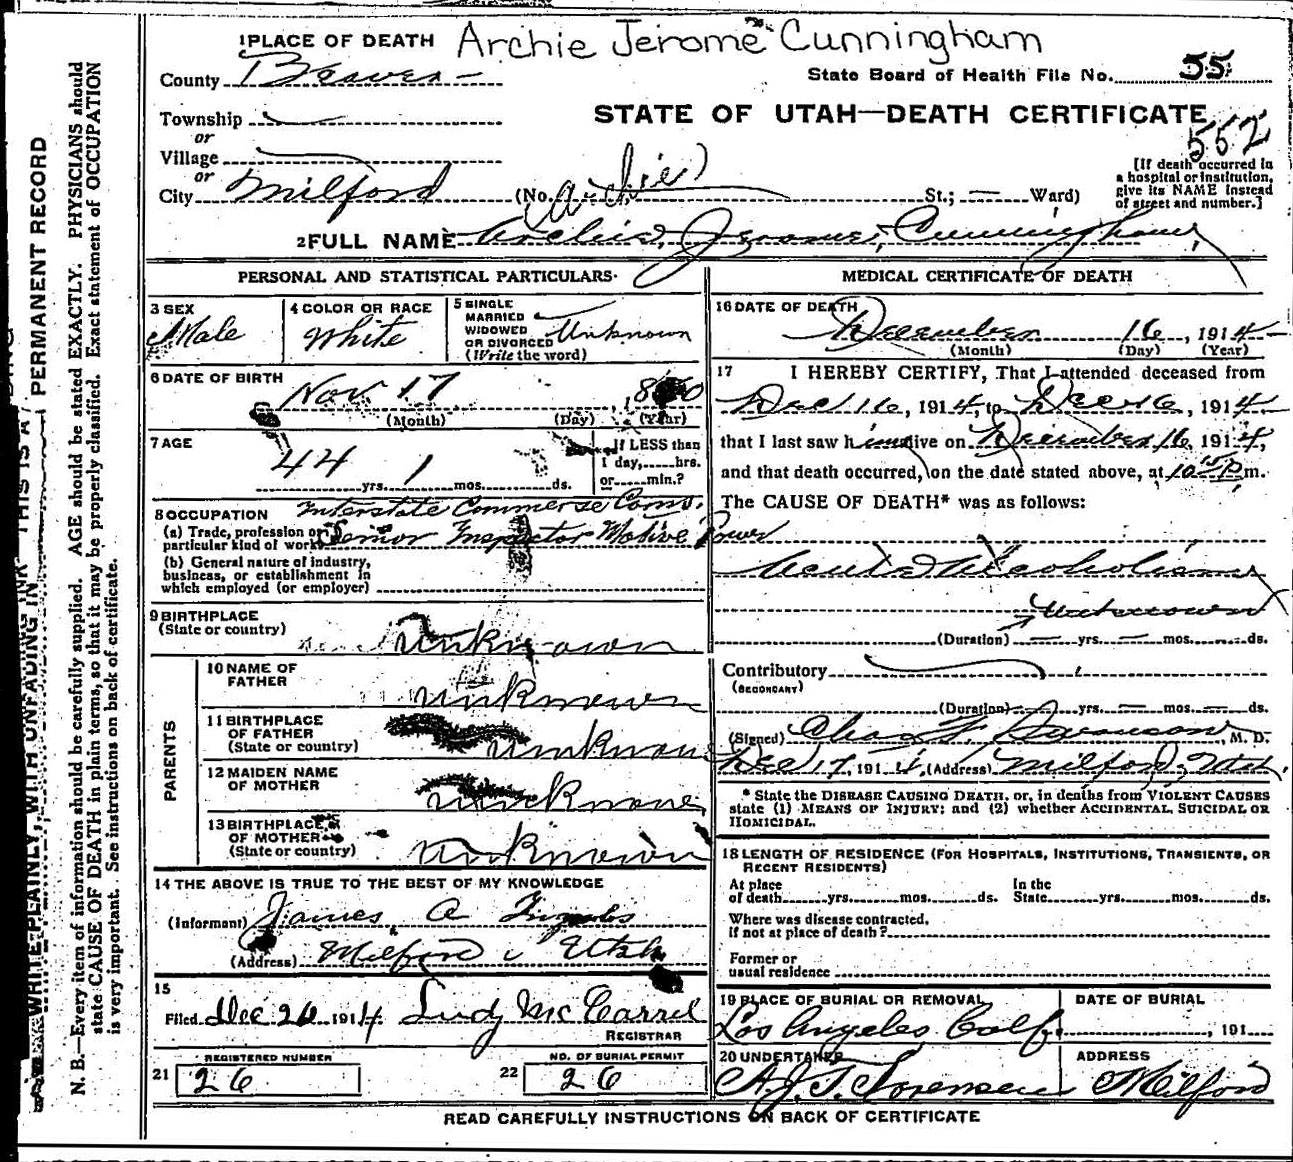 1 PLACE OF DEATH Archie Jerome Cunningham
County Beaver
State Board of Health File No. 55
Township
STATE OF UTAH—DEATH CERTIFICATE
or
552
Village
or
City Milford (No. St.; Ward)
(Archie)
[If death occurred in
a hospital or institution,
give its NAME instead
of street and number.]
2 FULL NAME Archie Jerome Cunningham
PERSONAL AND STATISTICAL PARTICULARS
3 SEX
Male
4 COLOR OR RACE
White
5 SINGLE
MARRIED
WIDOWED
OR DIVORCED
(Write the word)
Unknown
6 DATE OF BIRTH
Nov 17
(Month) (Day) (Year)
7 AGE
44 yrs. 1 mos. ds.
If LESS than
1 day, hrs.
or min.?
8 OCCUPATION
(a) Trade, profession or
particular kind of work
Interstate Commerse Coms.
Senior Inspector Motive Power
(b) General nature of industry,
business, or establishment in
which employed (or employer)
9 BIRTHPLACE
(State or country)
Unknown
PARENTS
10 NAME OF
FATHER
unknown
11 BIRTHPLACE
OF FATHER
(State or country)
unknown
12 MAIDEN NAME
OF MOTHER
unknown
13 BIRTHPLACE
OF MOTHER
(State or country)
unknown
14 THE ABOVE IS TRUE TO THE BEST OF MY KNOWLEDGE
(Informant) James A
(Address) Milford Utah
15
Filed Dec 26 1914 Ludy McCarrel
REGISTRAR
REGISTERED NUMBER
21 26
NO. OF BURIAL PERMIT
22 26
MEDICAL CERTIFICATE OF DEATH
16 DATE OF DEATH
December 16, 1914
(Month) (Day) (Year)
17 I HEREBY CERTIFY, That I attended deceased from
Dec 16, 1914, to Dec 16, 1914
that I last saw him alive on December 16, 1914,
and that death occurred, on the date stated above, at 10 15 P m.
The CAUSE OF DEATH* was as follows:
Acute Alcoholism
Unknown
(Duration) yrs. mos. ds.
Contributory
(SECONDARY)
(Duration) yrs. mos. ds.
(Signed) Chas F. Swanson, M. D.
Dec 17, 1914, (Address) Milford, Utah.
* State the DISEASE CAUSING DEATH, or, in deaths from VIOLENT CAUSES
state (1) MEANS OF INJURY; and (2) whether ACCIDENTAL, SUICIDAL OR
HOMICIDAL.
18 LENGTH OF RESIDENCE (FOR HOSPITALS, INSTITUTIONS, TRANSIENTS, OR
RECENT RESIDENTS)
At place
of death yrs. mos. ds.
In the
State yrs. mos. ds.
Where was disease contracted,
if not at place of death?
Former or
usual residence
19 PLACE OF BURIAL OR REMOVAL
Los Angeles Calf.
DATE OF BURIAL
, 191
20 UNDERTAKER
A.J.T. Sorensen
ADDRESS
Milford
READ CAREFULLY INSTRUCTIONS ON BACK OF CERTIFICATE
WRITE PLAINLY, WITH UNFADING INK THIS IS A PERMANENT RECORD
N. B.—Every item of information should be carefully supplied. AGE should be stated EXACTLY. PHYSICIANS should
state CAUSE OF DEATH in plain terms, so that it may be properly classified. Exact statement of OCCUPATION
is very important. See instructions on back of certificate.